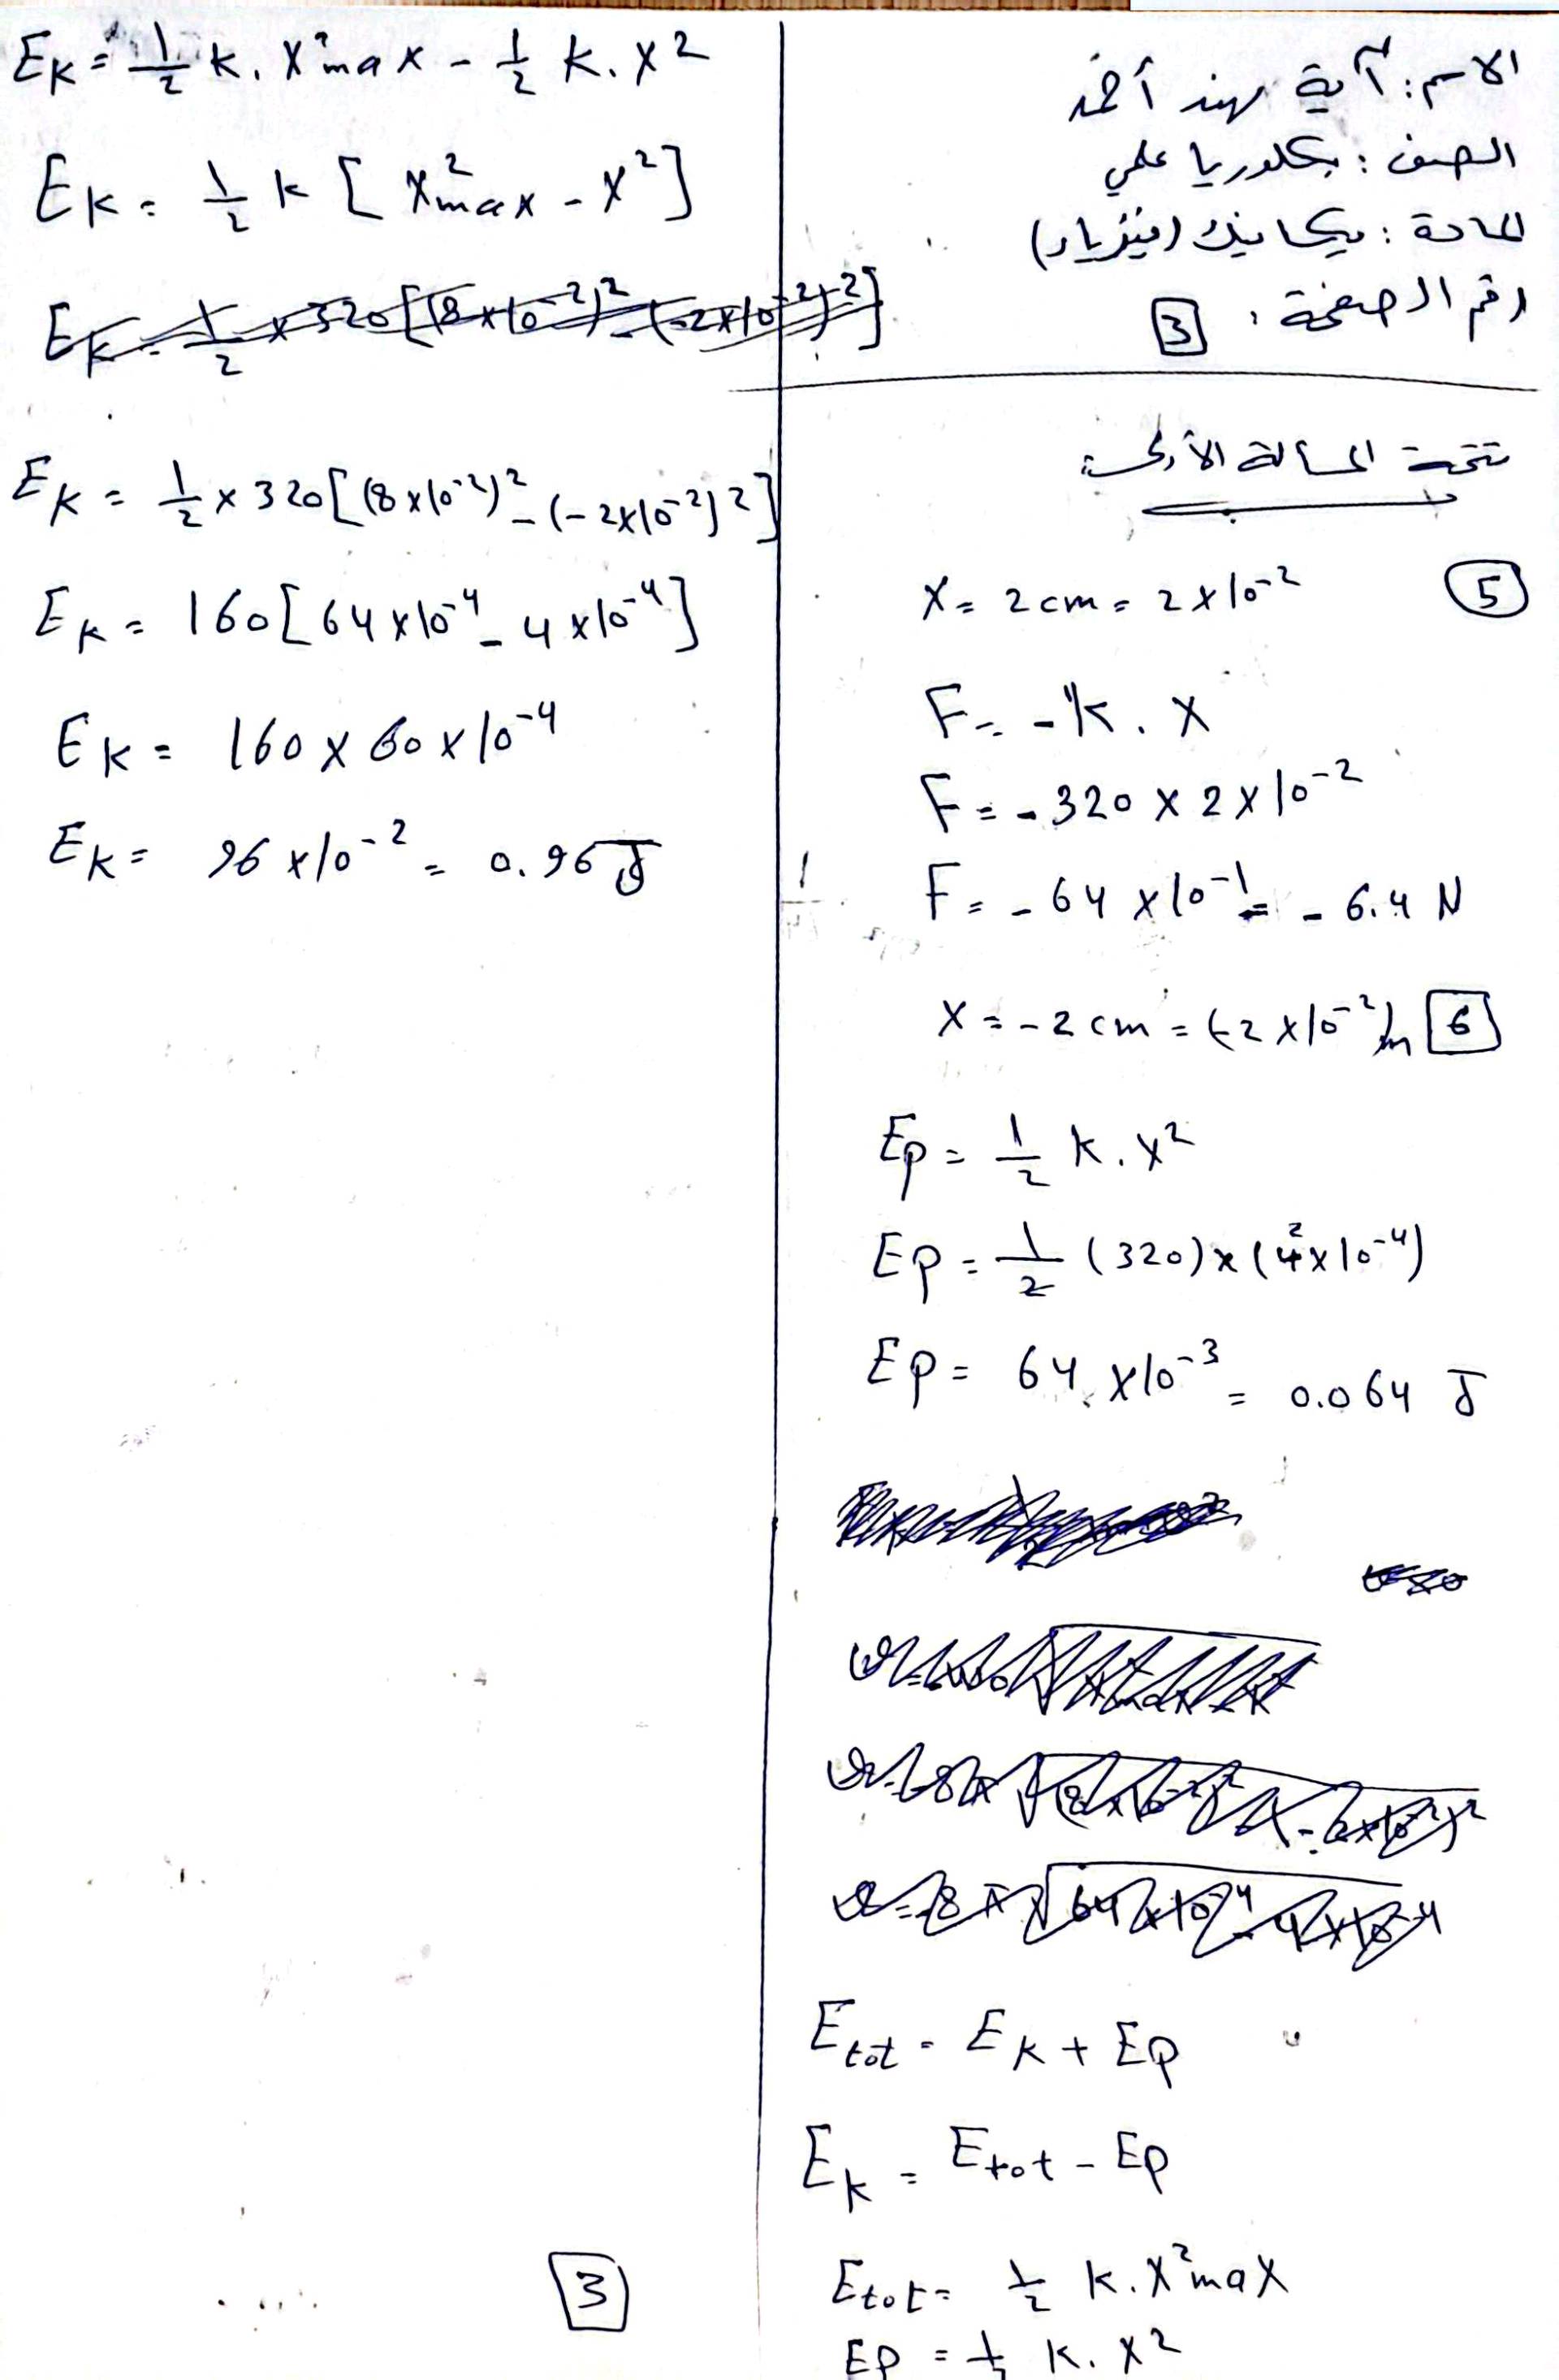 الاسم: آية مهند أحمد
الصف: بكلوريا علمي
المادة: ميكانيك (فيزياء)
رقم الصفحة: 3
تتمة المسألة الأولى:
5 X = 2 cm = 2 x 10^-2
F = -k . X
F = -320 x 2 x 10^-2
F = -64 x 10^-1 = -6.4 N
6 X = -2 cm = (-2 x 10^-2) m
Ep = 1/2 k . X^2
Ep = 1/2 (320) x (4 x 10^-4)
Ep = 64 x 10^-3 = 0.064 J
E tot = Ek + Ep
Ek = E tot - Ep
E tot = 1/2 k . X^2 max
Ep = 1/2 k . X^2
Ek = 1/2 k . X^2 max - 1/2 k . X^2
Ek = 1/2 k [X^2 max - X^2]
Ek = 1/2 x 320 [(8 x 10^-2)^2 - (-2 x 10^-2)^2]
Ek = 1/2 x 320 [(8 x 10^-2)^2 - (-2 x 10^-2)^2]
Ek = 160 [64 x 10^-4 - 4 x 10^-4]
Ek = 160 x 60 x 10^-4
Ek = 96 x 10^-2 = 0.96 J
3